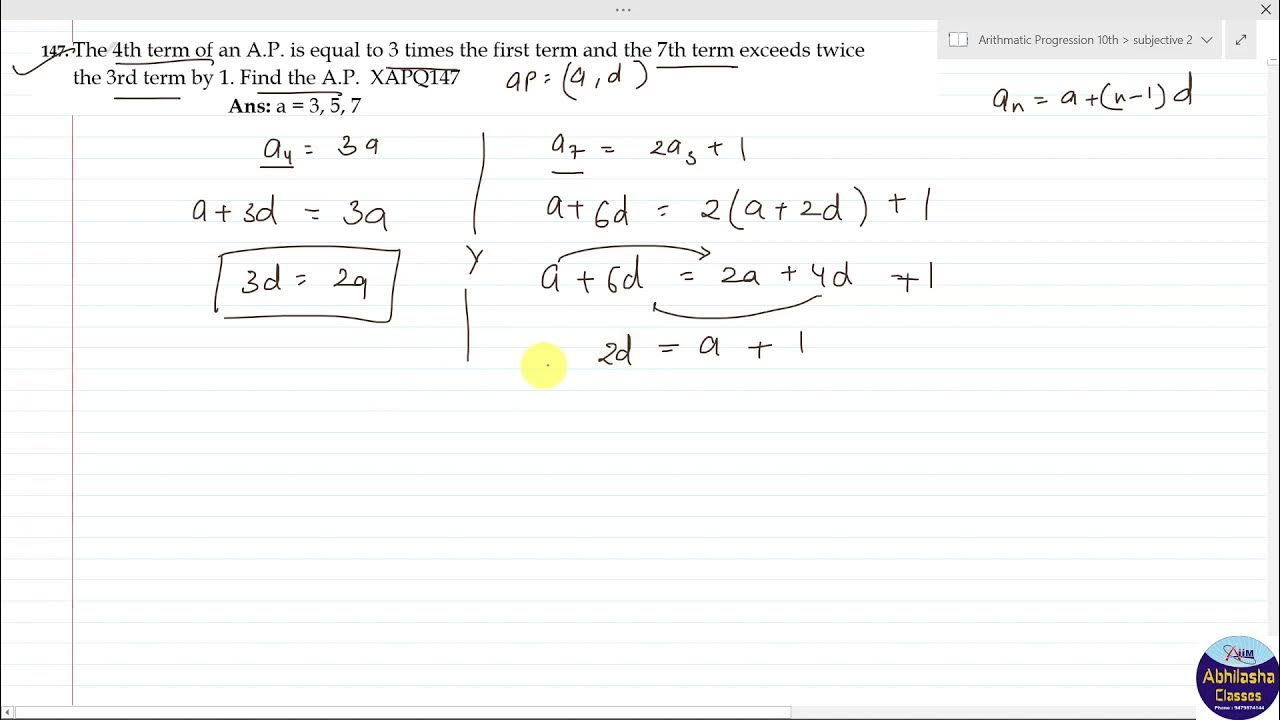 Arithmatic Progression 10th > subjective 2
147. The 4th term of an A.P. is equal to 3 times the first term and the 7th term exceeds twice
the 3rd term by 1. Find the A.P. XAPQ147
AP = (a, d)
Ans: a = 3, 5, 7
aₙ = a + (n-1) d
a₄ = 3a
a + 3d = 3a
3d = 2a
a₇ = 2a₃ + 1
a + 6d = 2(a + 2d) + 1
a + 6d = 2a + 4d + 1
2d = a + 1
AIIM
Abhilasha
Classes
Phone : 9479574144